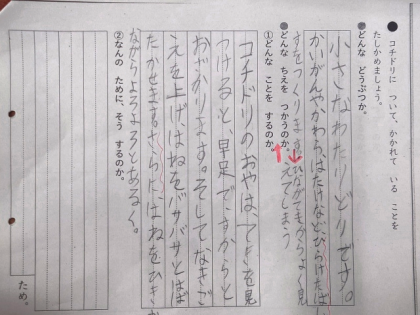 ● コチドリに ついて、かかれて いる ことを
たしかめましょう。
● どんな どうぶつか。
小さなわたりどりです。
かいがんやかわら、はたけなど、ひらけたばし
すをつくります。ひながてきからよく見
えてしまう
● どんな ちえを つかうのか。
① どんな ことを するのか。
コチドリのおやは、てきを見
つけると、早足ですからと
おざかります。そしてなきご
えを上げ、はねをバサバサとはば
たかせます。さらに、はねをひきず
ながらよろよろとあるく。
② なんの ために、そう するのか。
ため。